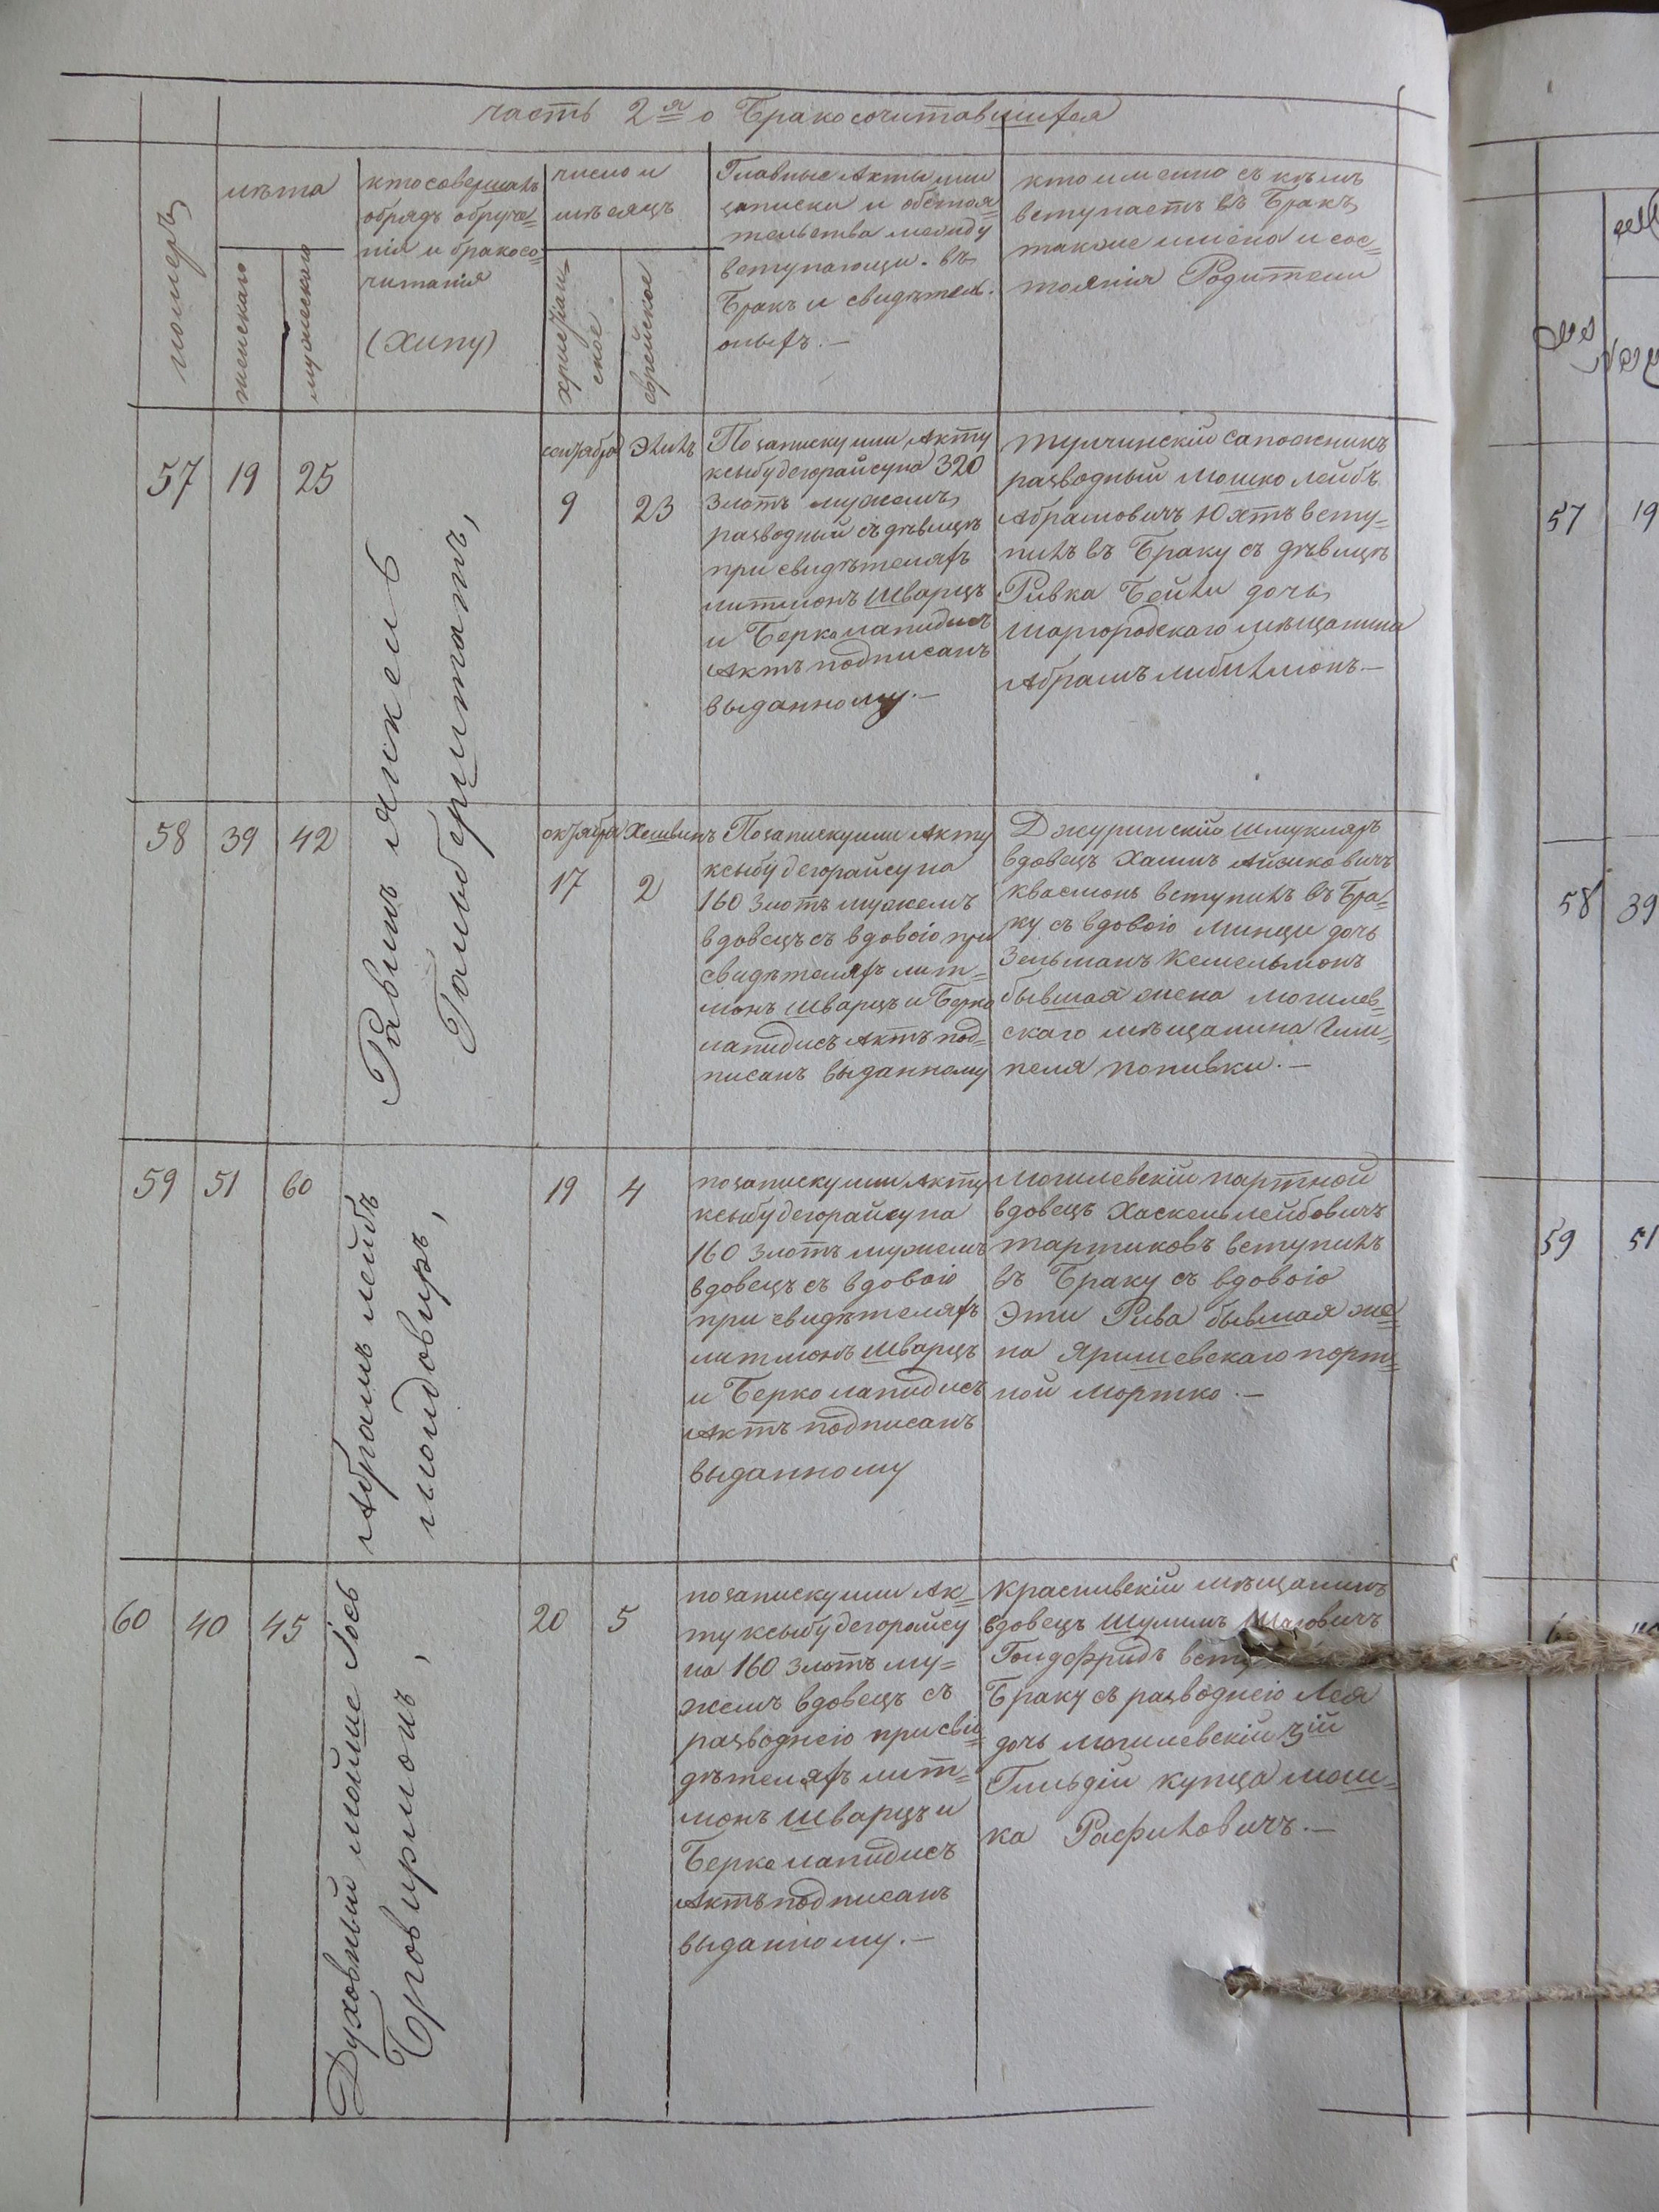 часть 2я о Бракосочитавшихся
номеръ
лѣта
женскаго
мужескаго
кто совершалъ
обрядъ обруче=
нія и бракосо=
читанія
(Хипу)
число и
мѣсяцъ
христіан=
ское
еврейское
Главные Акты или
записки и обстоя=
тельства между
вступающи. въ
Бракъ и свидѣтел.
оныхъ.—
кто именно съ кѣмъ
вступаетъ въ Бракъ,
также имена и сос=
тоянія Родители
Равинъ янкель
Гальберштатъ,
Абрамъ лейбъ
молдовиръ,
Духовный мойше Іось
Бровирмонъ,
57
19
25
сентября
9
Элилъ
23
По записку или Акту
ксыбу дегорайсу на 320
Злотъ мужемъ
разводный съ дѣвицѣ
при свидѣтеляхъ
литмонъ Шварцъ
и Берко лапидисъ
Актъ подписанъ
выданному.—
тулчинскій сапожникъ
разводный мошко лейбъ
Абрамовичъ Юхтъ всту=
пилъ въ Браку съ дѣвицѣ
Ривка Бейли дочь
Шаргородскаго мѣщанина
Абрамъ либилмонъ.—
58
39
42
октября
17
Хешвинъ
2
По записку или Акту
ксыбу дегорайсу на
160 Злотъ мужемъ
вдовецъ съ вдовою при
свидѣтеляхъ лит=
монъ Шварцъ и Берко
лапидисъ Актъ под=
писанъ выданному
Джуринскій шмукляръ
вдовецъ Хаимъ Айзиковичъ
Квасмонъ вступилъ въ Бра=
ку съ вдовою Минци дочь
Зельманъ Кемельмонъ
бывшая жена могилев=
скаго мѣщанина Гим=
пеля попивки.—
59
51
60
19
4
по записку или Акту
ксыбу дегорайсу на
160 Злотъ мужемъ
вдовецъ съ вдовою
при свидѣтеляхъ
литмонъ Шварцъ
и Берко лапидисъ
Актъ подписанъ
выданному
Могилевскій партной
вдовецъ Хаскель лейбовичъ
тартиковъ вступилъ
въ Браку съ вдовою
Эти Рива бывшая же=
на Яришевскаго порт=
ной мортко.—
60
40
45
20
5
по записку или Ак=
ту ксыбу дегорайсу
на 160 Злотъ му=
жемъ вдовецъ съ
разводнею при сви=
дѣтеляхъ лит=
монъ Шварцъ и
Берко лапидисъ
Актъ подписанъ
выданному.—
Краснивскій мѣщанинъ
вдовецъ Шулимъ
Голдфридъ
Браку съ разводнею Лея
дочь могилевскій 3ій
Гильдіи купца мош=
ка Рафиловичъ.—
57
19
58
39
59
51